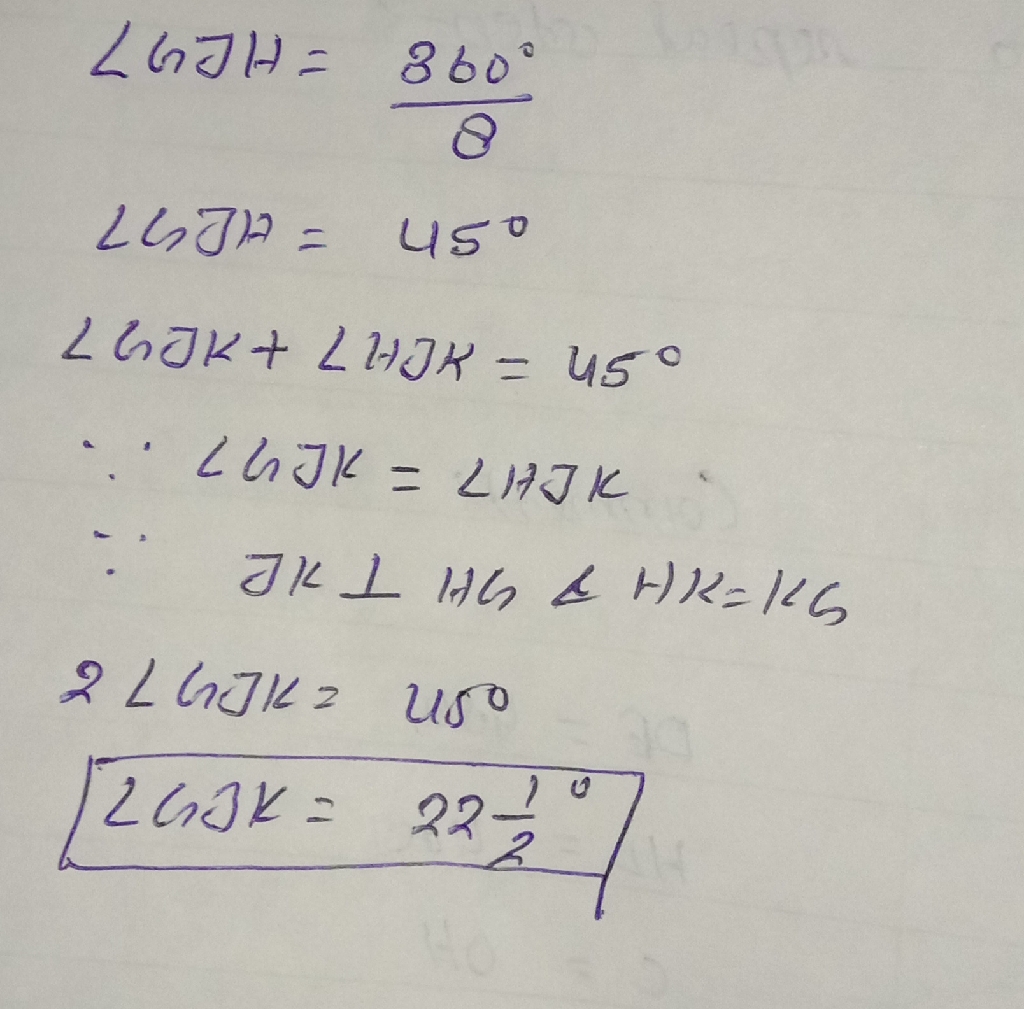 ∠GJH = 360°
8
∠GJH = 45°
∠GJK + ∠HJK = 45°
∵ ∠GJK = ∠HJK
∵ JK ⊥ HG & HK = KG
2∠GJK = 45°
∠GJK = 22 1/2°